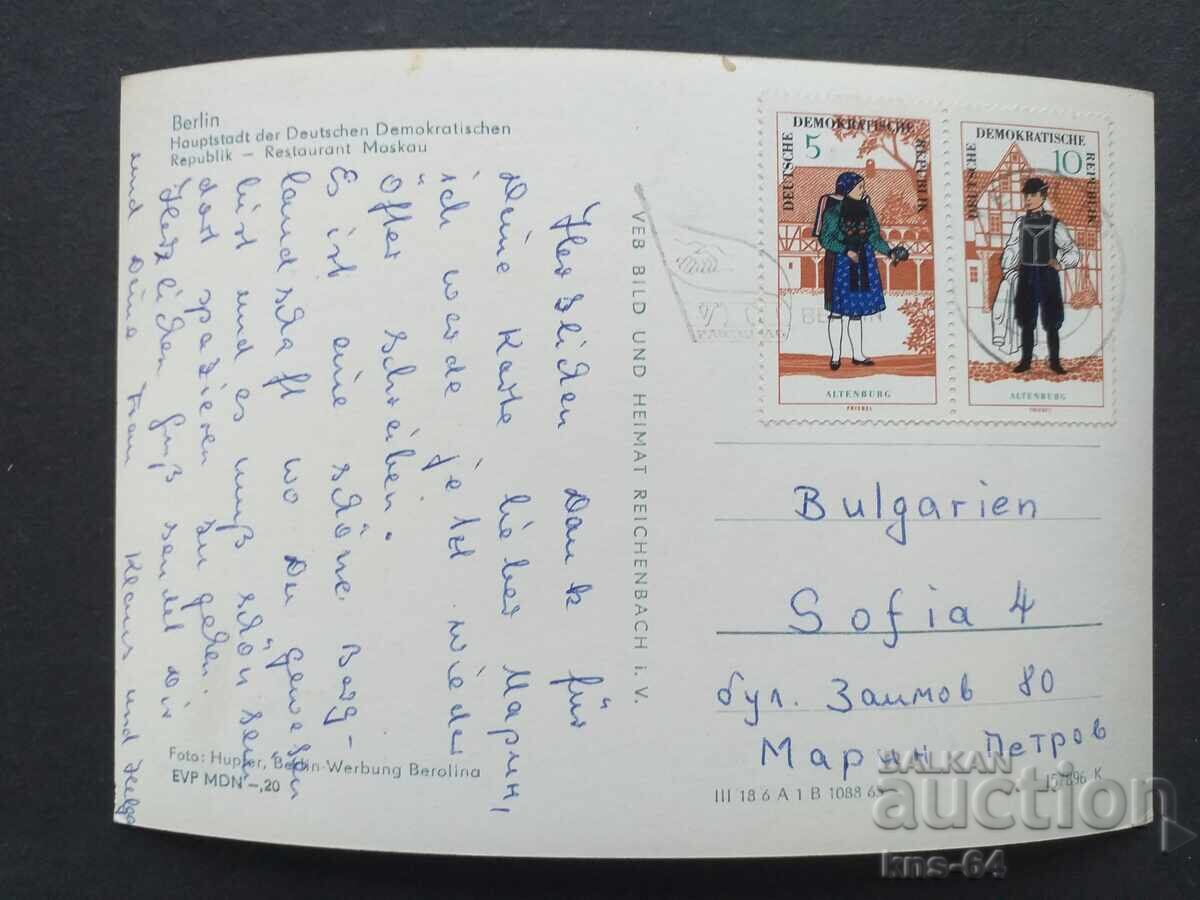 Berlin
Hauptstadt der Deutschen Demokratischen
Republik – Restaurant Moskau
Herzlichen Dank für
Deine Karte lieber Марин,
ich werde jetzt wieder
öfter schreiben.
Es ist eine schöne Berg-
landschaft wo Du gewesen
bist und es muß schön sein
dort spazieren zu gehen.
Herzlichen Gruß sendet Dir
und Deine Frau Klaus und Helga
Foto: Hupfer, Berlin-Werbung Berolina
EVP MDN –,20
VEB BILD UND HEIMAT REICHENBACH i. V.
DEUTSCHE DEMOKRATISCHE REPUBLIK
5
ALTENBURG
PRIEBEL
DEUTSCHE DEMOKRATISCHE REPUBLIK
10
ALTENBURG
PRIEBEL
BERLIN
Bulgarien
Sofia 4
бул. Заимов 80
Марин Петров
III 18 6 A 1 B 1088 65
157896 K
BALKAN
auction
kns-64